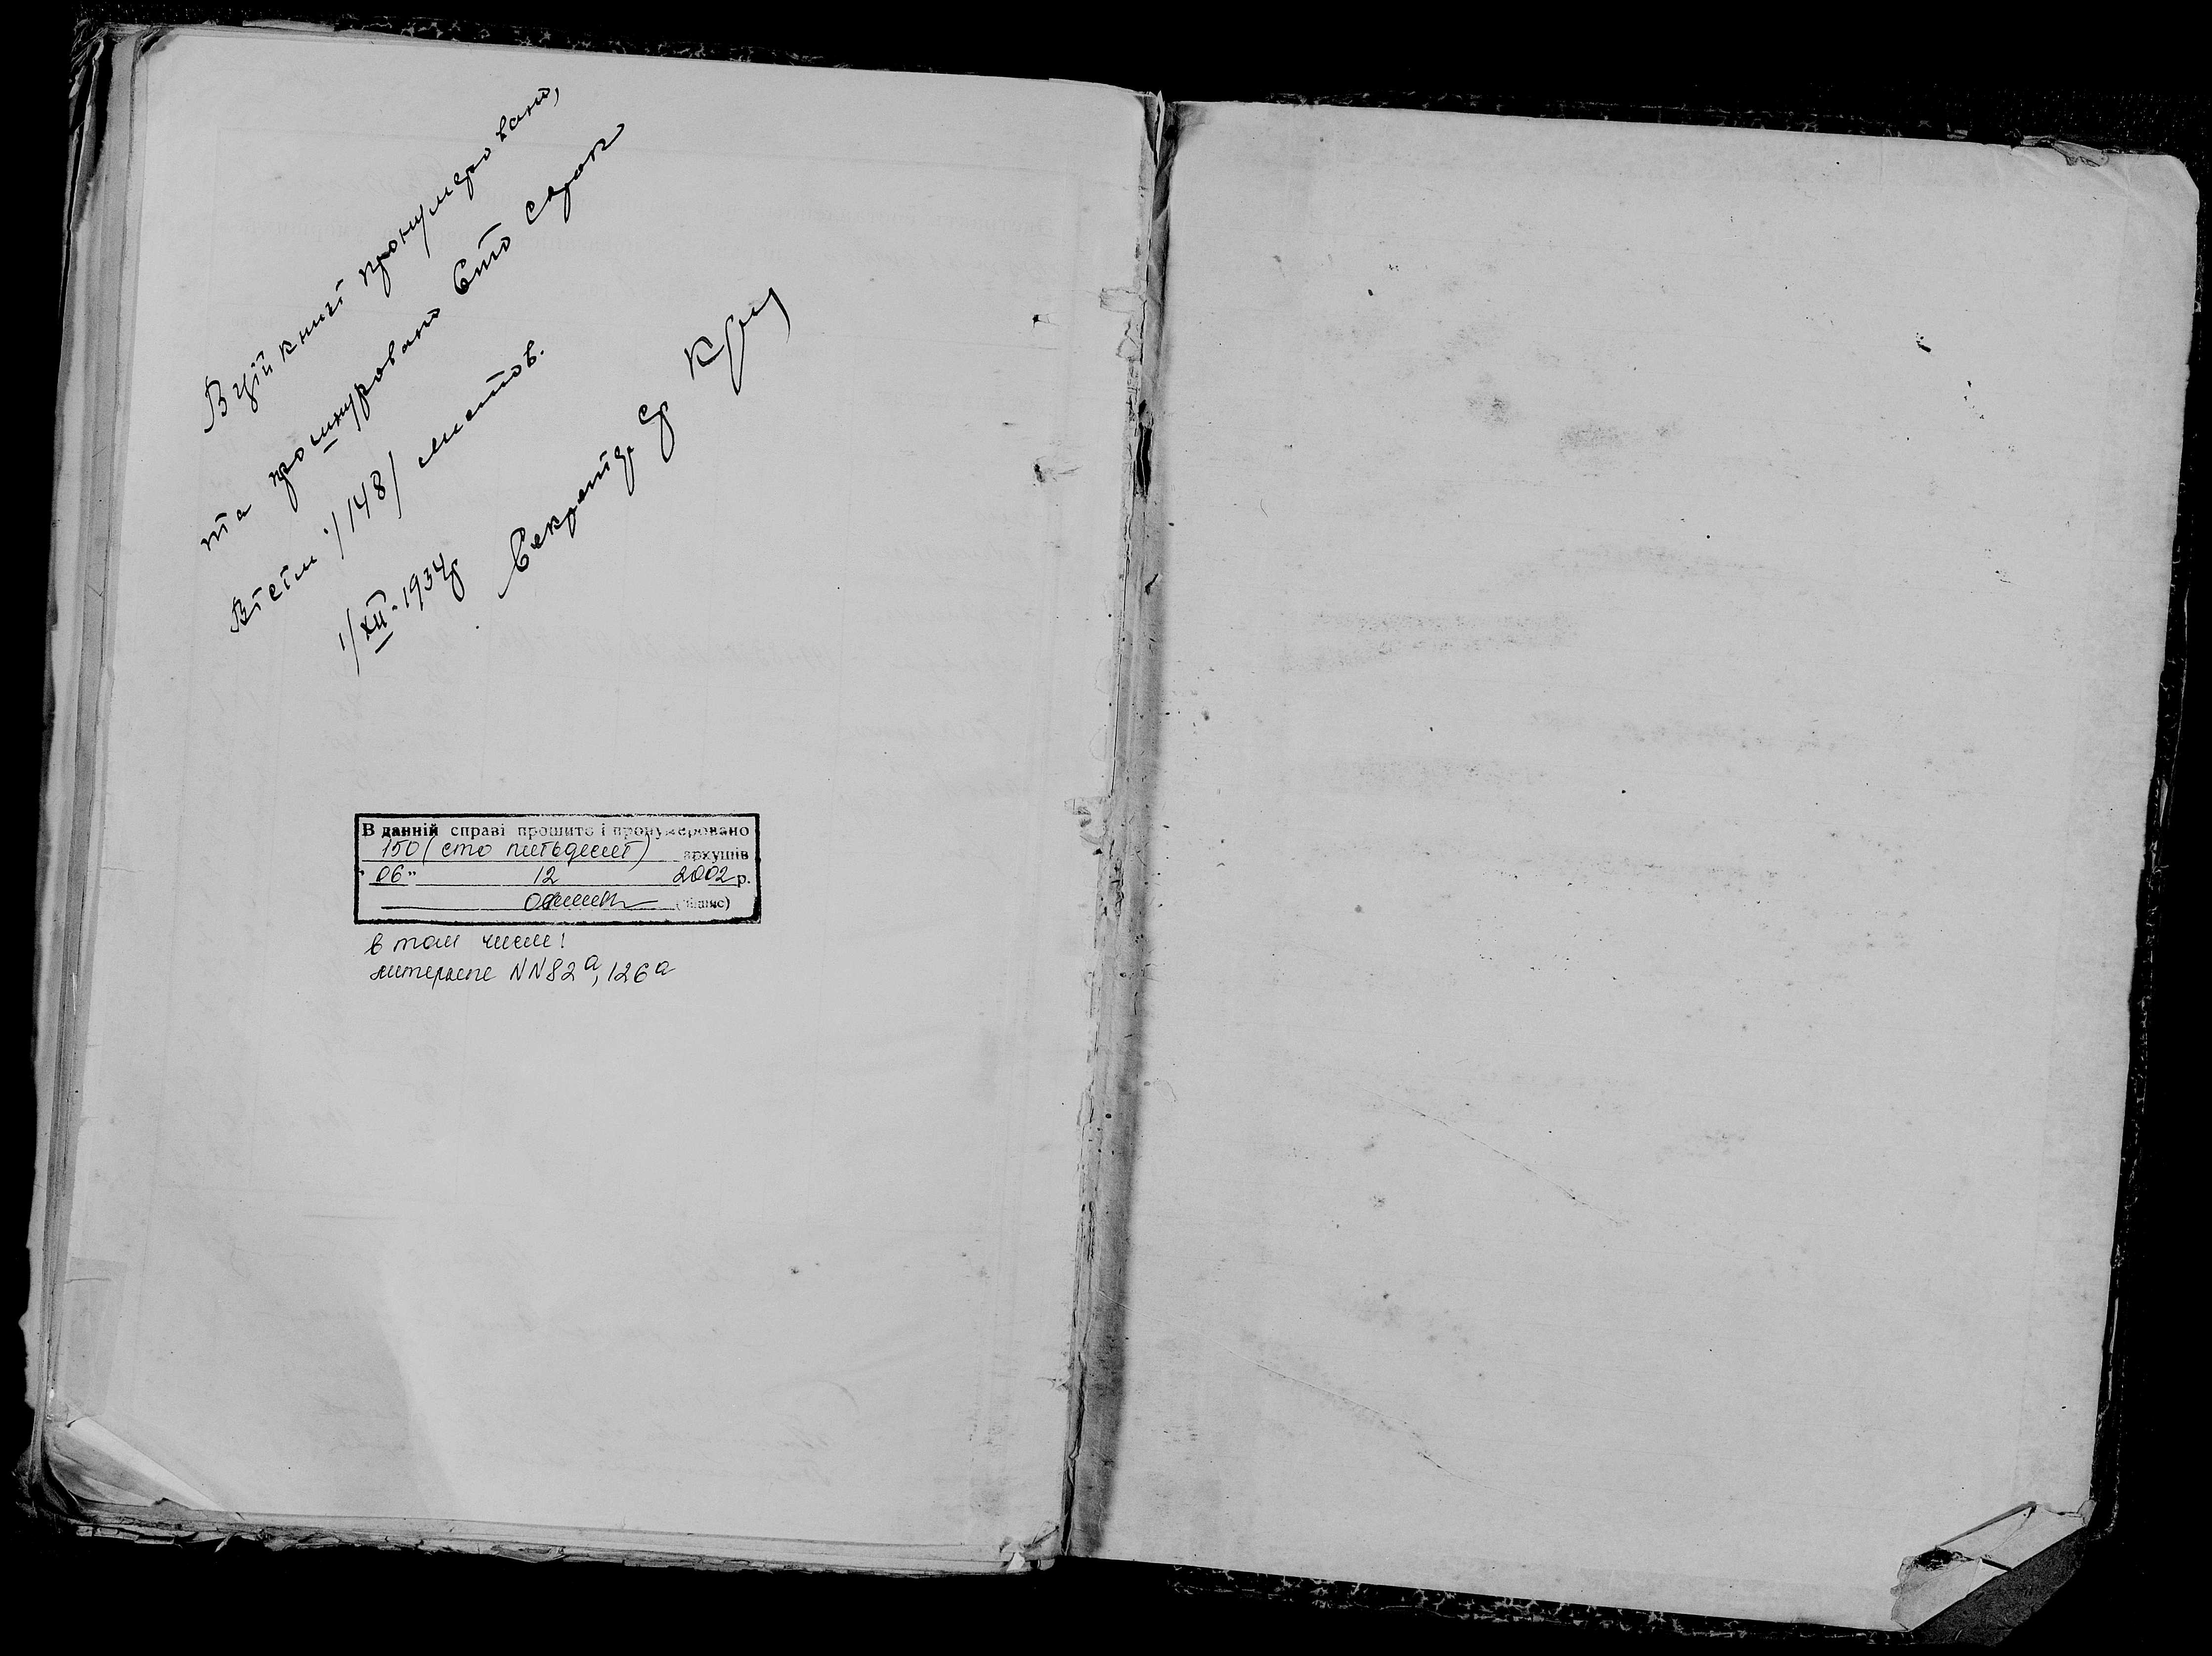 В цій книгі пронумеровано,
та прошнуровано Сто сорок
Вісім /148/ листов.
1/XII-1934р
Секретар с/р
В данній справі прошито і пронумеровано
150 (сто пятьдесят) аркушів
"06" 12 2002 р.
(підпис)
в том числе:
литерные NN82а, 126а